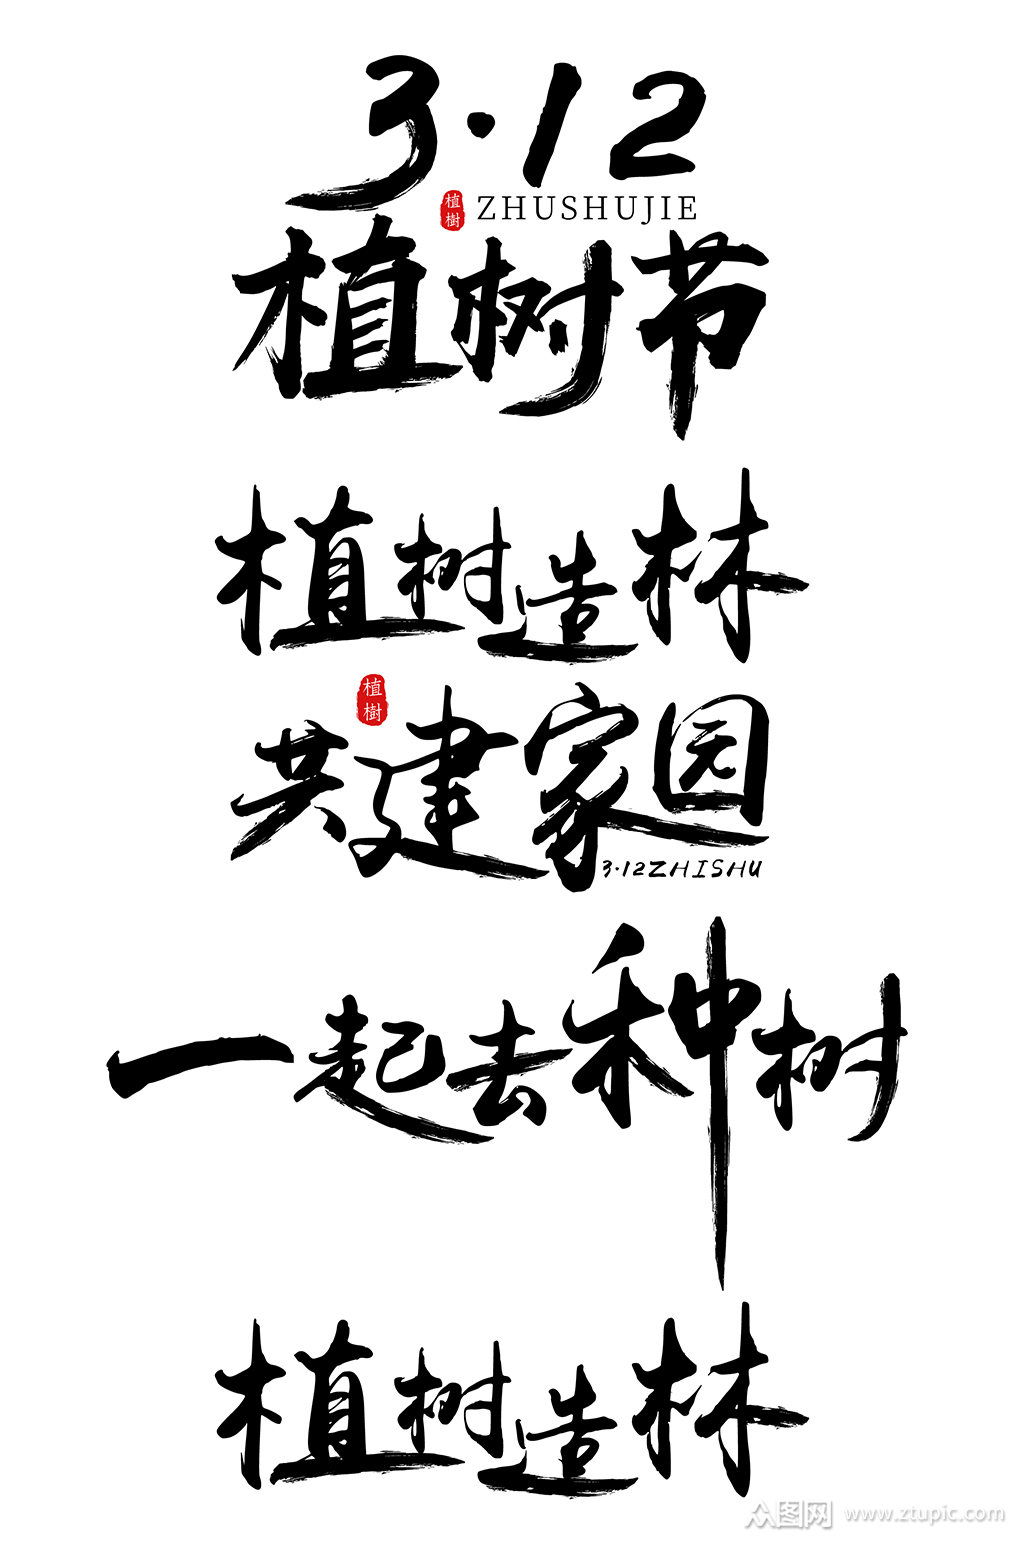 3·12
植樹 ZHUSHUJIE
植树节
植树造林
植樹
共建家园
3·12ZHISHU
一起去种树
植树造林
众图网 www.ztupic.com